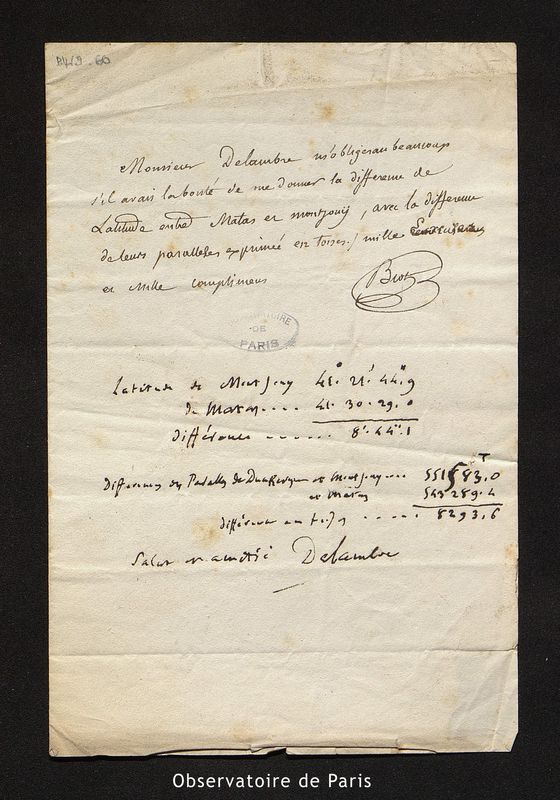 Monsieur Delambre m'obligerau beaucoup
s'il avait la bonté de me donner la difference de
Latitude entre Matas et montjouij, avec la difference
de leurs paralleles exprimée en toises. / mille
et mille complimens
Biot
OBSERVATOIRE
DE
PARIS
Latitude de Montjouy 41° 21' 44" 9
de Matas.... 41. 30. 29. 0
différence ....... 8'. 44". 1
Différences des Parall. de Dunkerque et Montjouy... 551583,0 T
et Matas 543289.4
différence en toises ..... 8293,6
Salut et amitié Delambre
Observatoire de Paris